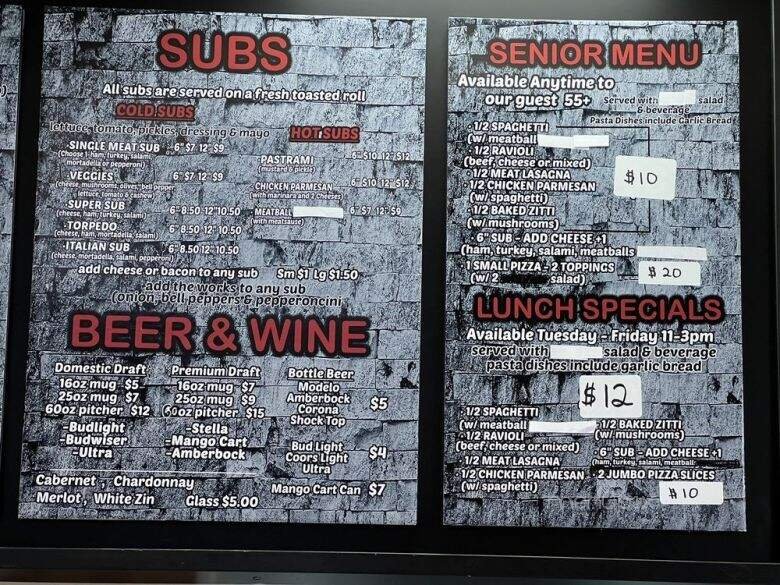 SUBS
All subs are served on a fresh toasted roll
COLD SUBS
lettuce, tomato, pickles, dressing & mayo
-SINGLE MEAT SUB 6" $7 12" $9
(Choose 1-ham, turkey, salami,
mortadella or pepperoni)
-VEGGIES 6" $7 12" $9
(cheese, mushrooms, olives, bell pepper
lettuce, tomato & cashew)
-SUPER SUB 6" 8.50 12" 10.50
(cheese, ham, turkey, salami)
-TORPEDO 6" 8.50 12" 10.50
(cheese, ham, mortadella, salami)
-ITALIAN SUB 6" 8.50 12" 10.50
(cheese, ham, mortadella, salami, pepperoni)
HOT SUBS
-PASTRAMI 6" $10 12" $12
(mustard & pickle)
CHICKEN PARMESAN 6" $10 12" $12
(with marinara and 2 cheeses
MEATBALL 6" $7 12" $9
(with meatsauce)
add cheese or bacon to any sub Sm $1 Lg $1.50
add the works to any sub
(onion, bell peppers & pepperoncini
BEER & WINE
Domestic Draft
16oz mug $5
25oz mug $7
60oz pitcher $12
-Budlight
-Budwiser
-Ultra
Premium Draft
16oz mug $7
25oz mug $9
60oz pitcher $15
-Stella
-Mango Cart
-Amberbock
Bottle Beer
Modelo
Amberbock
Corona
Shock Top
$5
Bud Light
Coors Light
Ultra
$4
Mango Cart Can $7
Cabernet , Chardonnay
Merlot , White Zin Glass $5.00
SENIOR MENU
Available Anytime to
our guest 55+
Served with salad
& beverage
Pasta Dishes include Garlic Bread
-1/2 SPAGHETTI
(w/ meatball
-1/2 RAVIOLI
(beef, cheese or mixed)
-1/2 MEAT LASAGNA
-1/2 CHICKEN PARMESAN
(w/ spaghetti)
-1/2 BAKED ZITTI
(w/ mushrooms)
$10
-6" SUB - ADD CHEESE +1
(ham, turkey, salami, meatballs
-1 SMALL PIZZA - 2 TOPPINGS
(w/ 2 salad)
$20
LUNCH SPECIALS
Available Tuesday - Friday 11-3pm
served with salad & beverage
pasta dishes include garlic bread
$12
-1/2 SPAGHETTI
(w/ meatball
-1/2 RAVIOLI
(beef, cheese or mixed)
-1/2 MEAT LASAGNA
-1/2 CHICKEN PARMESAN
(w/ spaghetti)
-1/2 BAKED ZITTI
(w/ mushrooms)
6" SUB - ADD CHEESE +1
(ham, turkey, salami, meatball
- 2 JUMBO PIZZA SLICES
$10